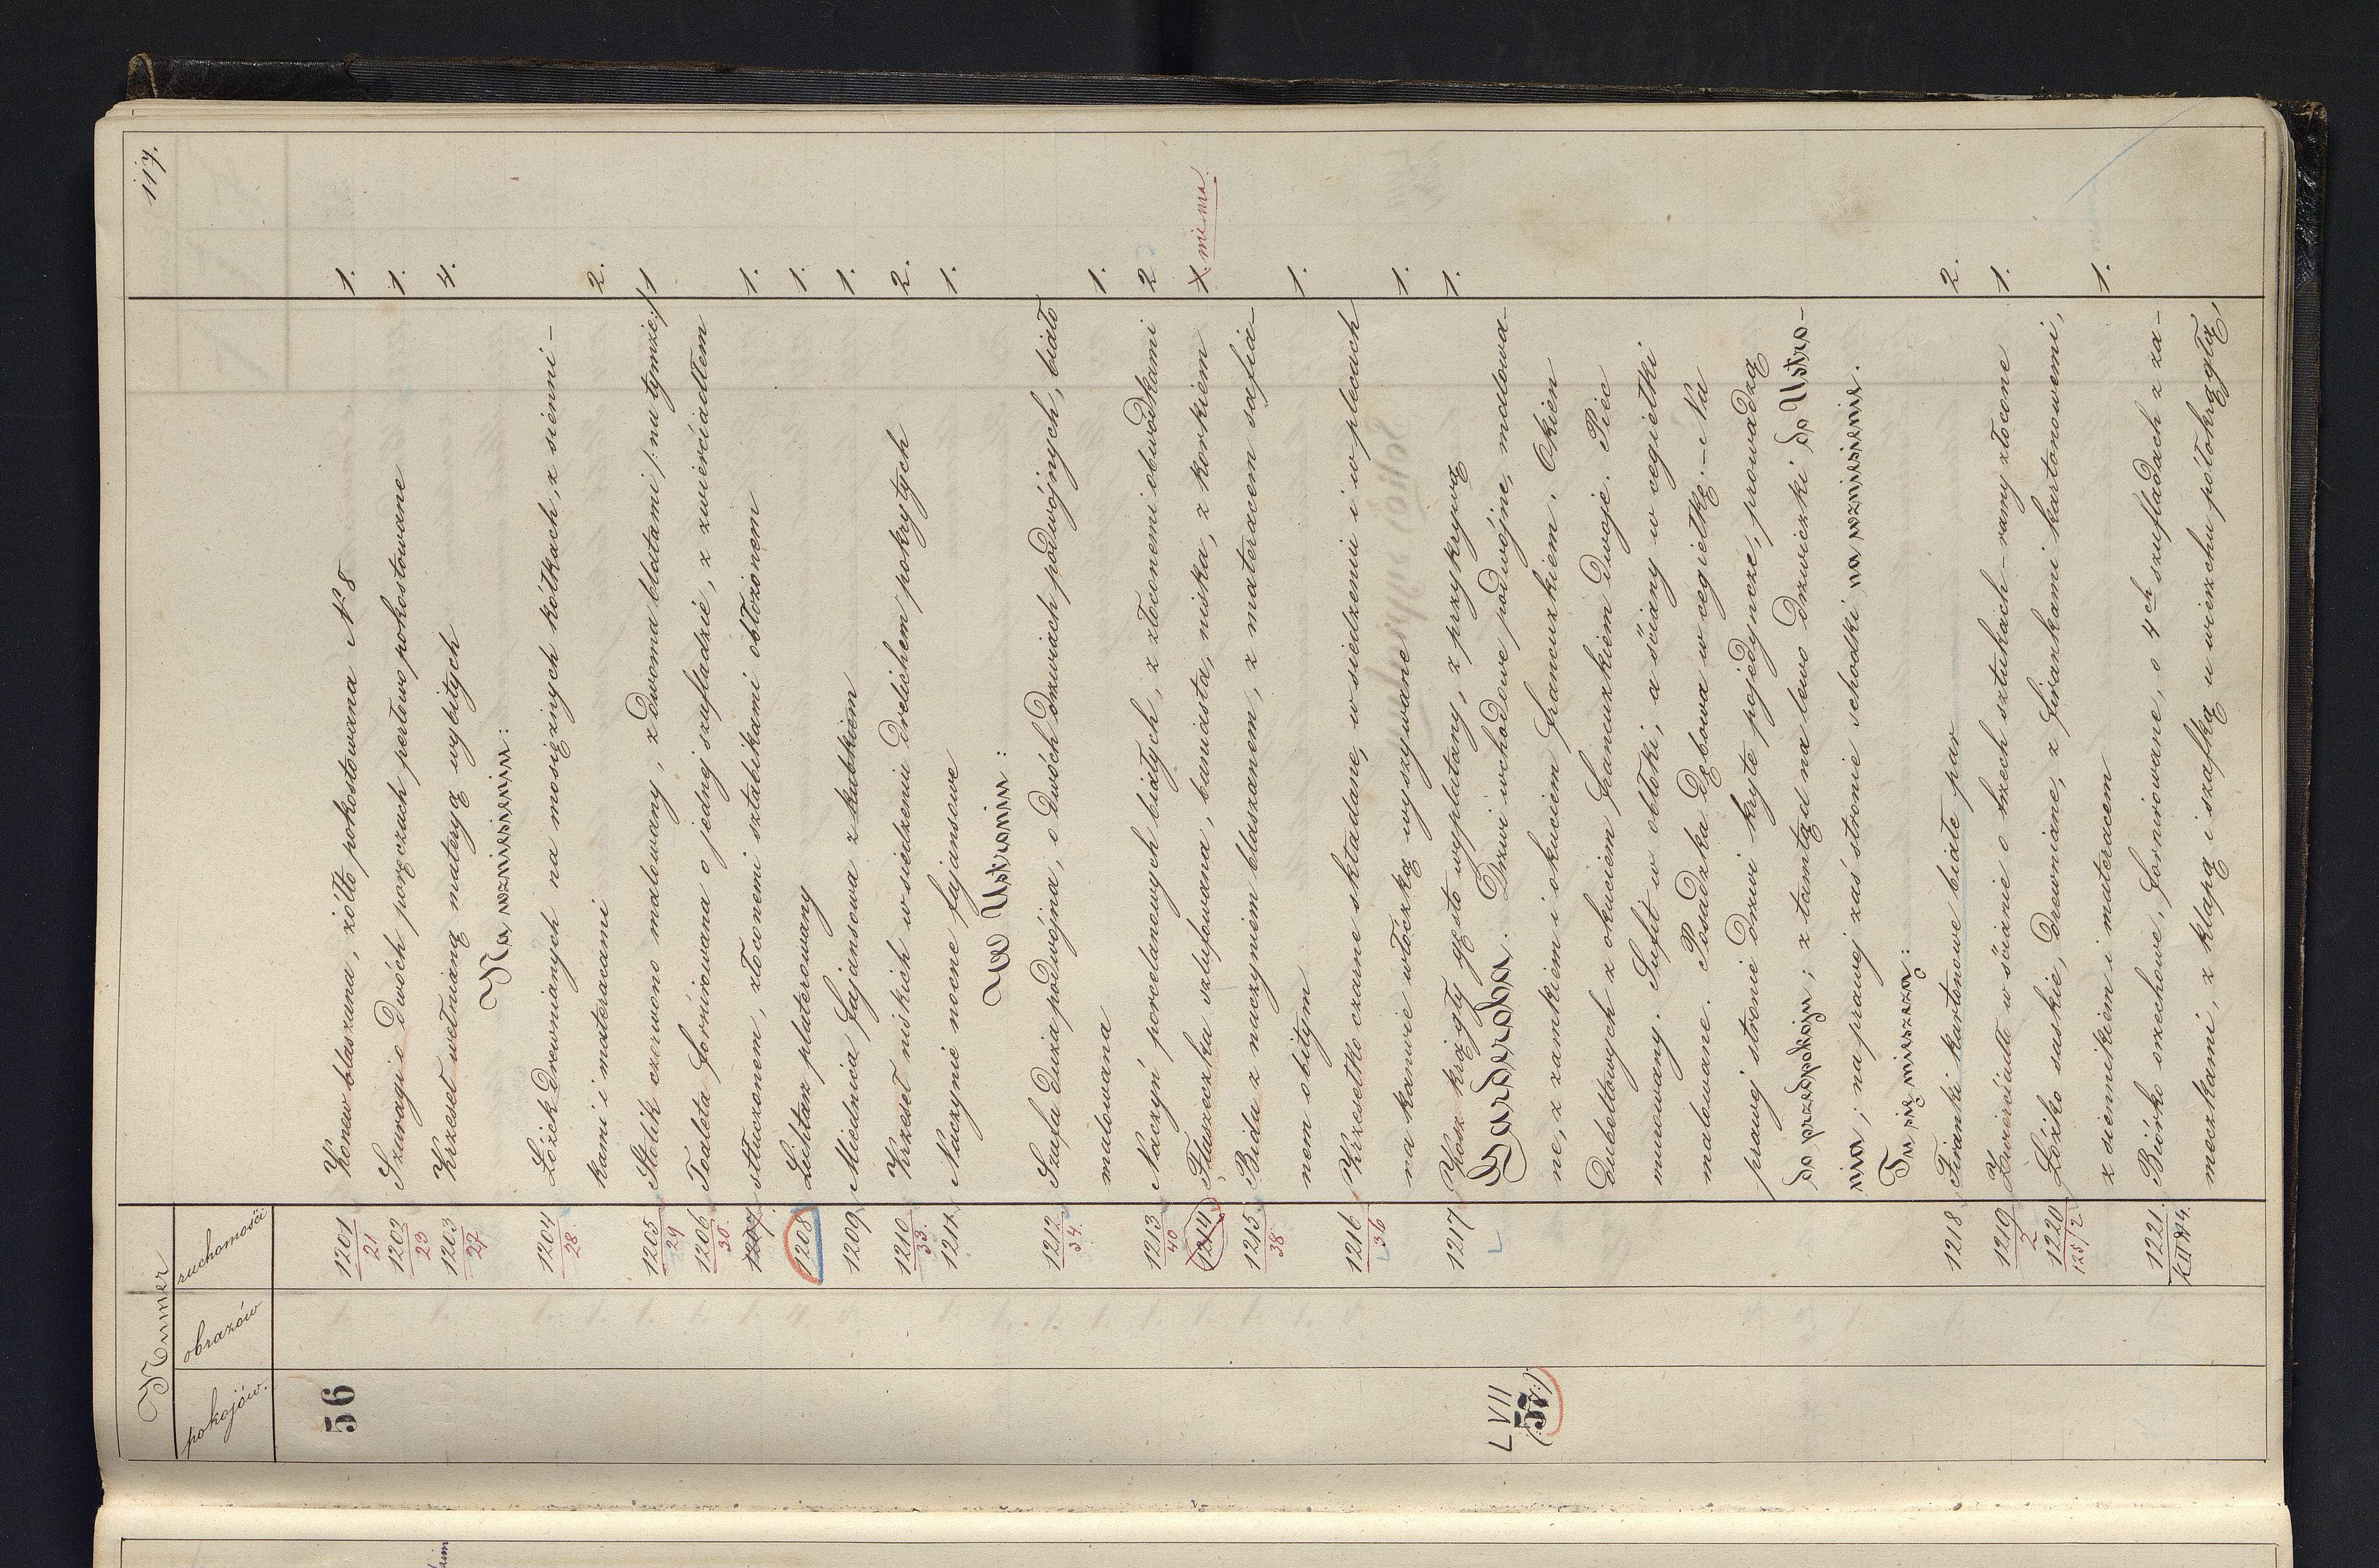 117.
Numer
pokojów.
obrazów
ruchomości
56
1201 Konew blaszana, żółto pokostowana N 8 1.
21
1202 Szaragi o dwóch poręczach perłowo pokostowane 1.
23
1203 Krzeseł wełnianą materyą wybitych 4.
27
Na wzniesieniu:
1204 Łóżek drewnianych na mosiężnych kółkach, z sienni-
28
kami i materacami 2.
1205 Stolik czerwono malowany, z dwoma blatami /: na tymże :/ 1
29
1206 Toaleta fornirowana o jednej szufladzie, z zwierciadłem
30.
1207. stłuczonem, złoconemi sztabikami obłożonem 1.
1208 Lichtarz platerowany 1.
1209 Miednica fajansowa z kubkiem 1.
1210 Krzeseł niskich w siedzeniu drelichem pokrytych 2.
33.
1211. Naczynie nocne fajansowe 1.
We Ustroniu:
1212 Szafa duża podwójna, o dwóch drzwiach podwójnych, biało
34.
malowana 1.
1213 Naczyń porcelanowych białych, z złoconemi obwódkami 2
40
1214 Flaszeczka szlufowana, baniasta, niska, z korkiem 1. niema.
1215 Bida z naczyniem blaszanem, z materacem safia-
38
nem obitym 1.
1216 Krzesełko czarne składane, w siedzeniu i w plecach
36
na kanwie włóczką wyszywane 1.
1217 Kosz krągły gęsto wyplatany, z przykrywą 1.
L VII
(:57:)
Garderoba. Drzwi wchodowe podwójne, malowa-
ne, z zamkiem i okuciem francuzkiem. Okien
dubeltowych z okuciem francuzkiem dwoje. Piec
murowany. Sufit w obłoki, a ściany w cegiełki
malowane. Posadzka dębowa w cegiełkę. – Na
prawej stronie drzwi kryte pojedyncze, prowadzą
do przedpokoju; z tamtąd na lewo drzwiczki do Ustro-
nia; na prawej zaś stronie schodki na wzniesienie.
Tu się mieszczą:
1218 Firanki kartonowe białe par 2.
1219 Zwierciadło w ścianie o trzech sztukach – ramy złocone 1.
2
1220 Łóżko saskie, drewniane, z firankami kartonowemi,
125/2
z siennikiem i materacem 1.
1221. Biórko orzechowe, fornirowane, o 4ch szufladach z za-
meczkami, z klapą i szafką u wierzchu półokrągłą,